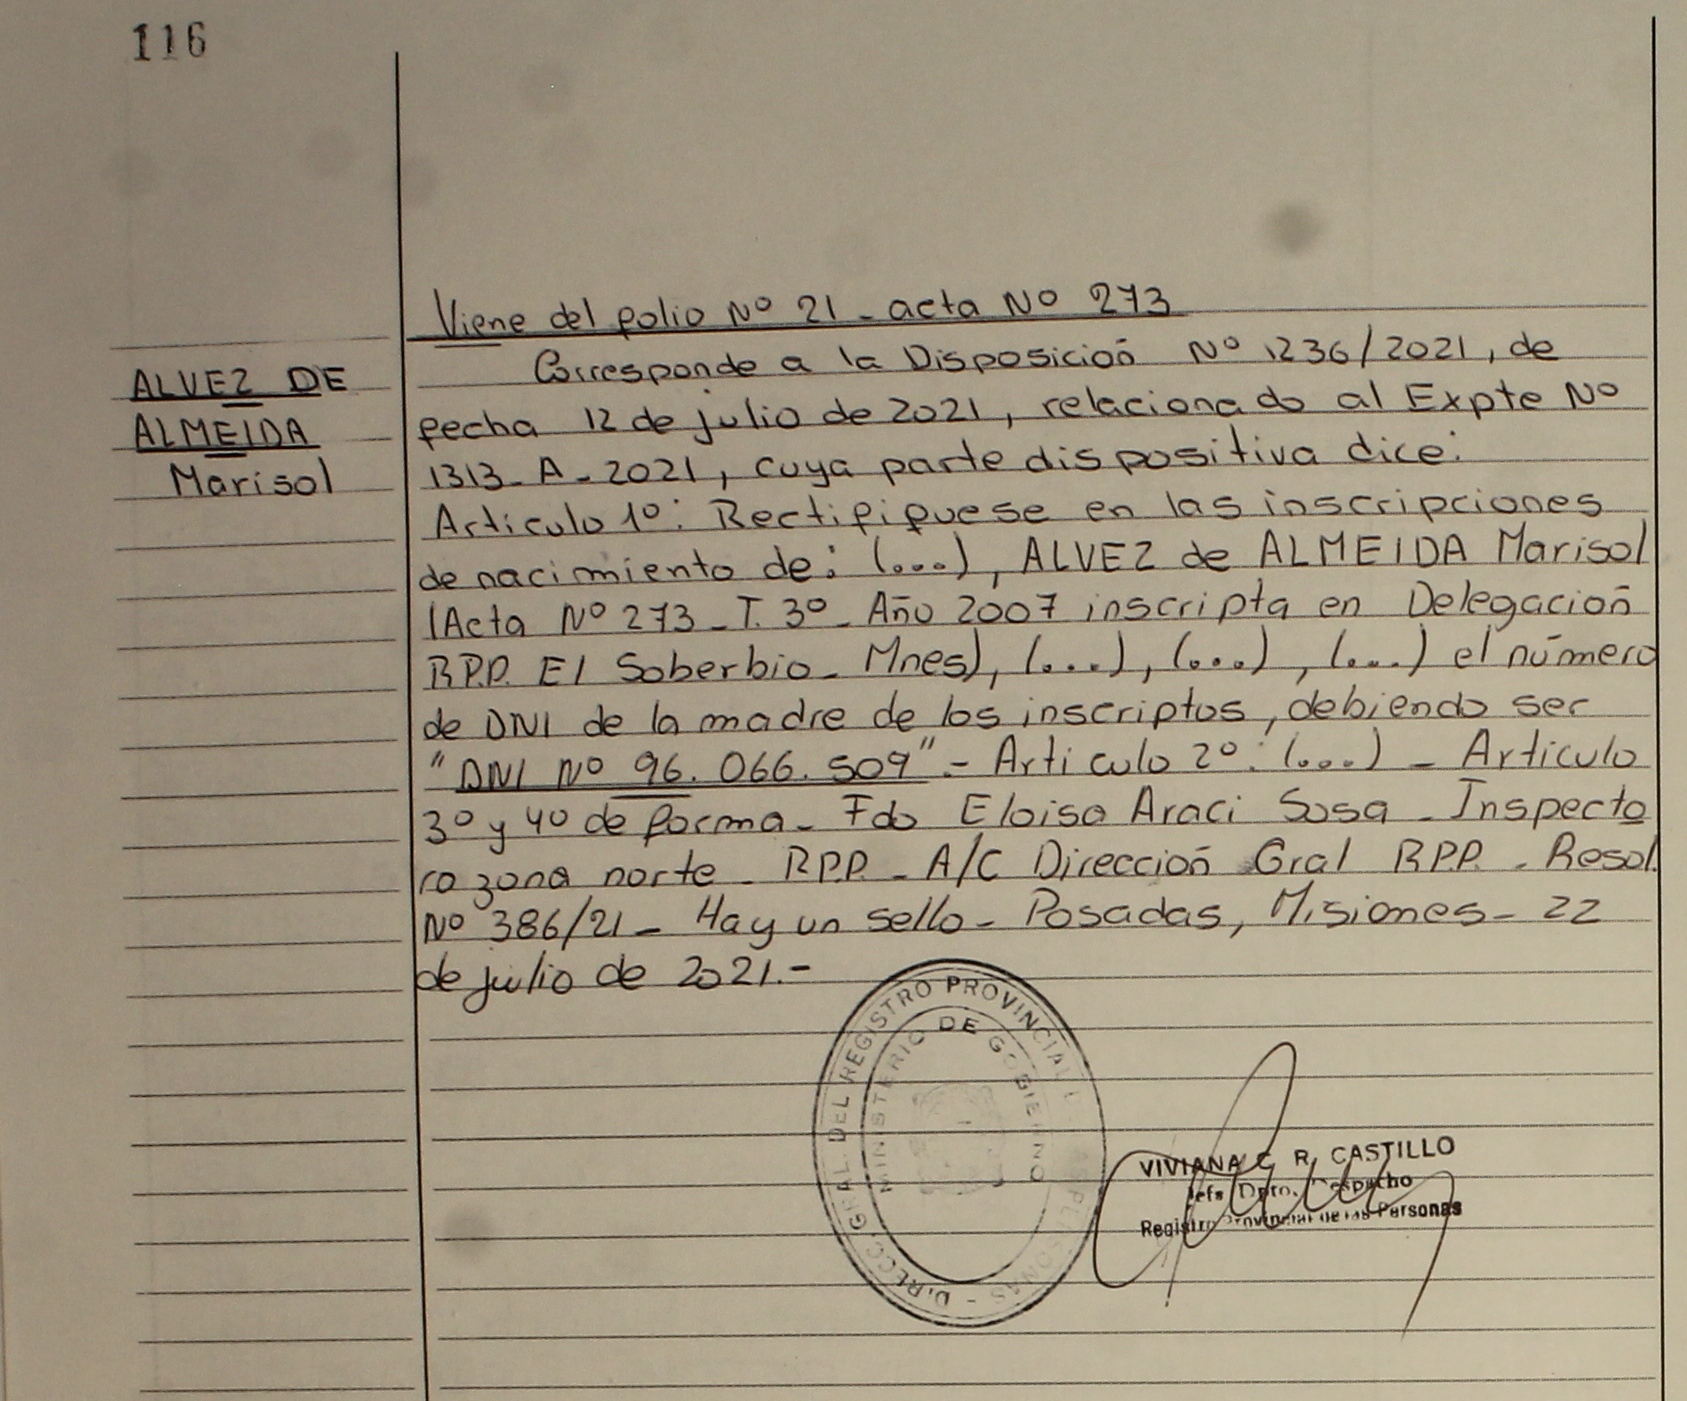 116
Viene del folio Nº 21 - acta Nº 273
ALVEZ DE
ALMEIDA
Marisol
Corresponde a la Disposición Nº 1236/2021, de
fecha 12 de julio de 2021, relacionado al Expte Nº
1313-A-2021, cuya parte dispositiva dice:
Artículo 1º: Rectifíquese en las inscripciones
de nacimiento de: (...), ALVEZ de ALMEIDA Marisol
(Acta Nº 273 - T. 3º - Año 2007 inscripta en Delegación
R.P.P. El Soberbio - Mnes), (...), (...), (...) el número
de DNI de la madre de los inscriptos, debiendo ser
"DNI Nº 96.066.509" - Artículo 2º: (...) - Artículo
3º y 4º de forma - Fdo Eloisa Araci Sosa - Inspecto
ra zona norte - R.P.P. - A/C Dirección Gral R.P.P. - Resol.
Nº 386/21 - Hay un sello - Posadas, Misiones - 22
de julio de 2021.-
DIRECC. GRAL. DEL REGISTRO PROVINCIAL DE LAS PERSONAS -
MINISTERIO DE GOBIERNO
VIVIANA C. R. CASTILLO
Jefa Dpto. Despacho
Registro Provincial de las Personas